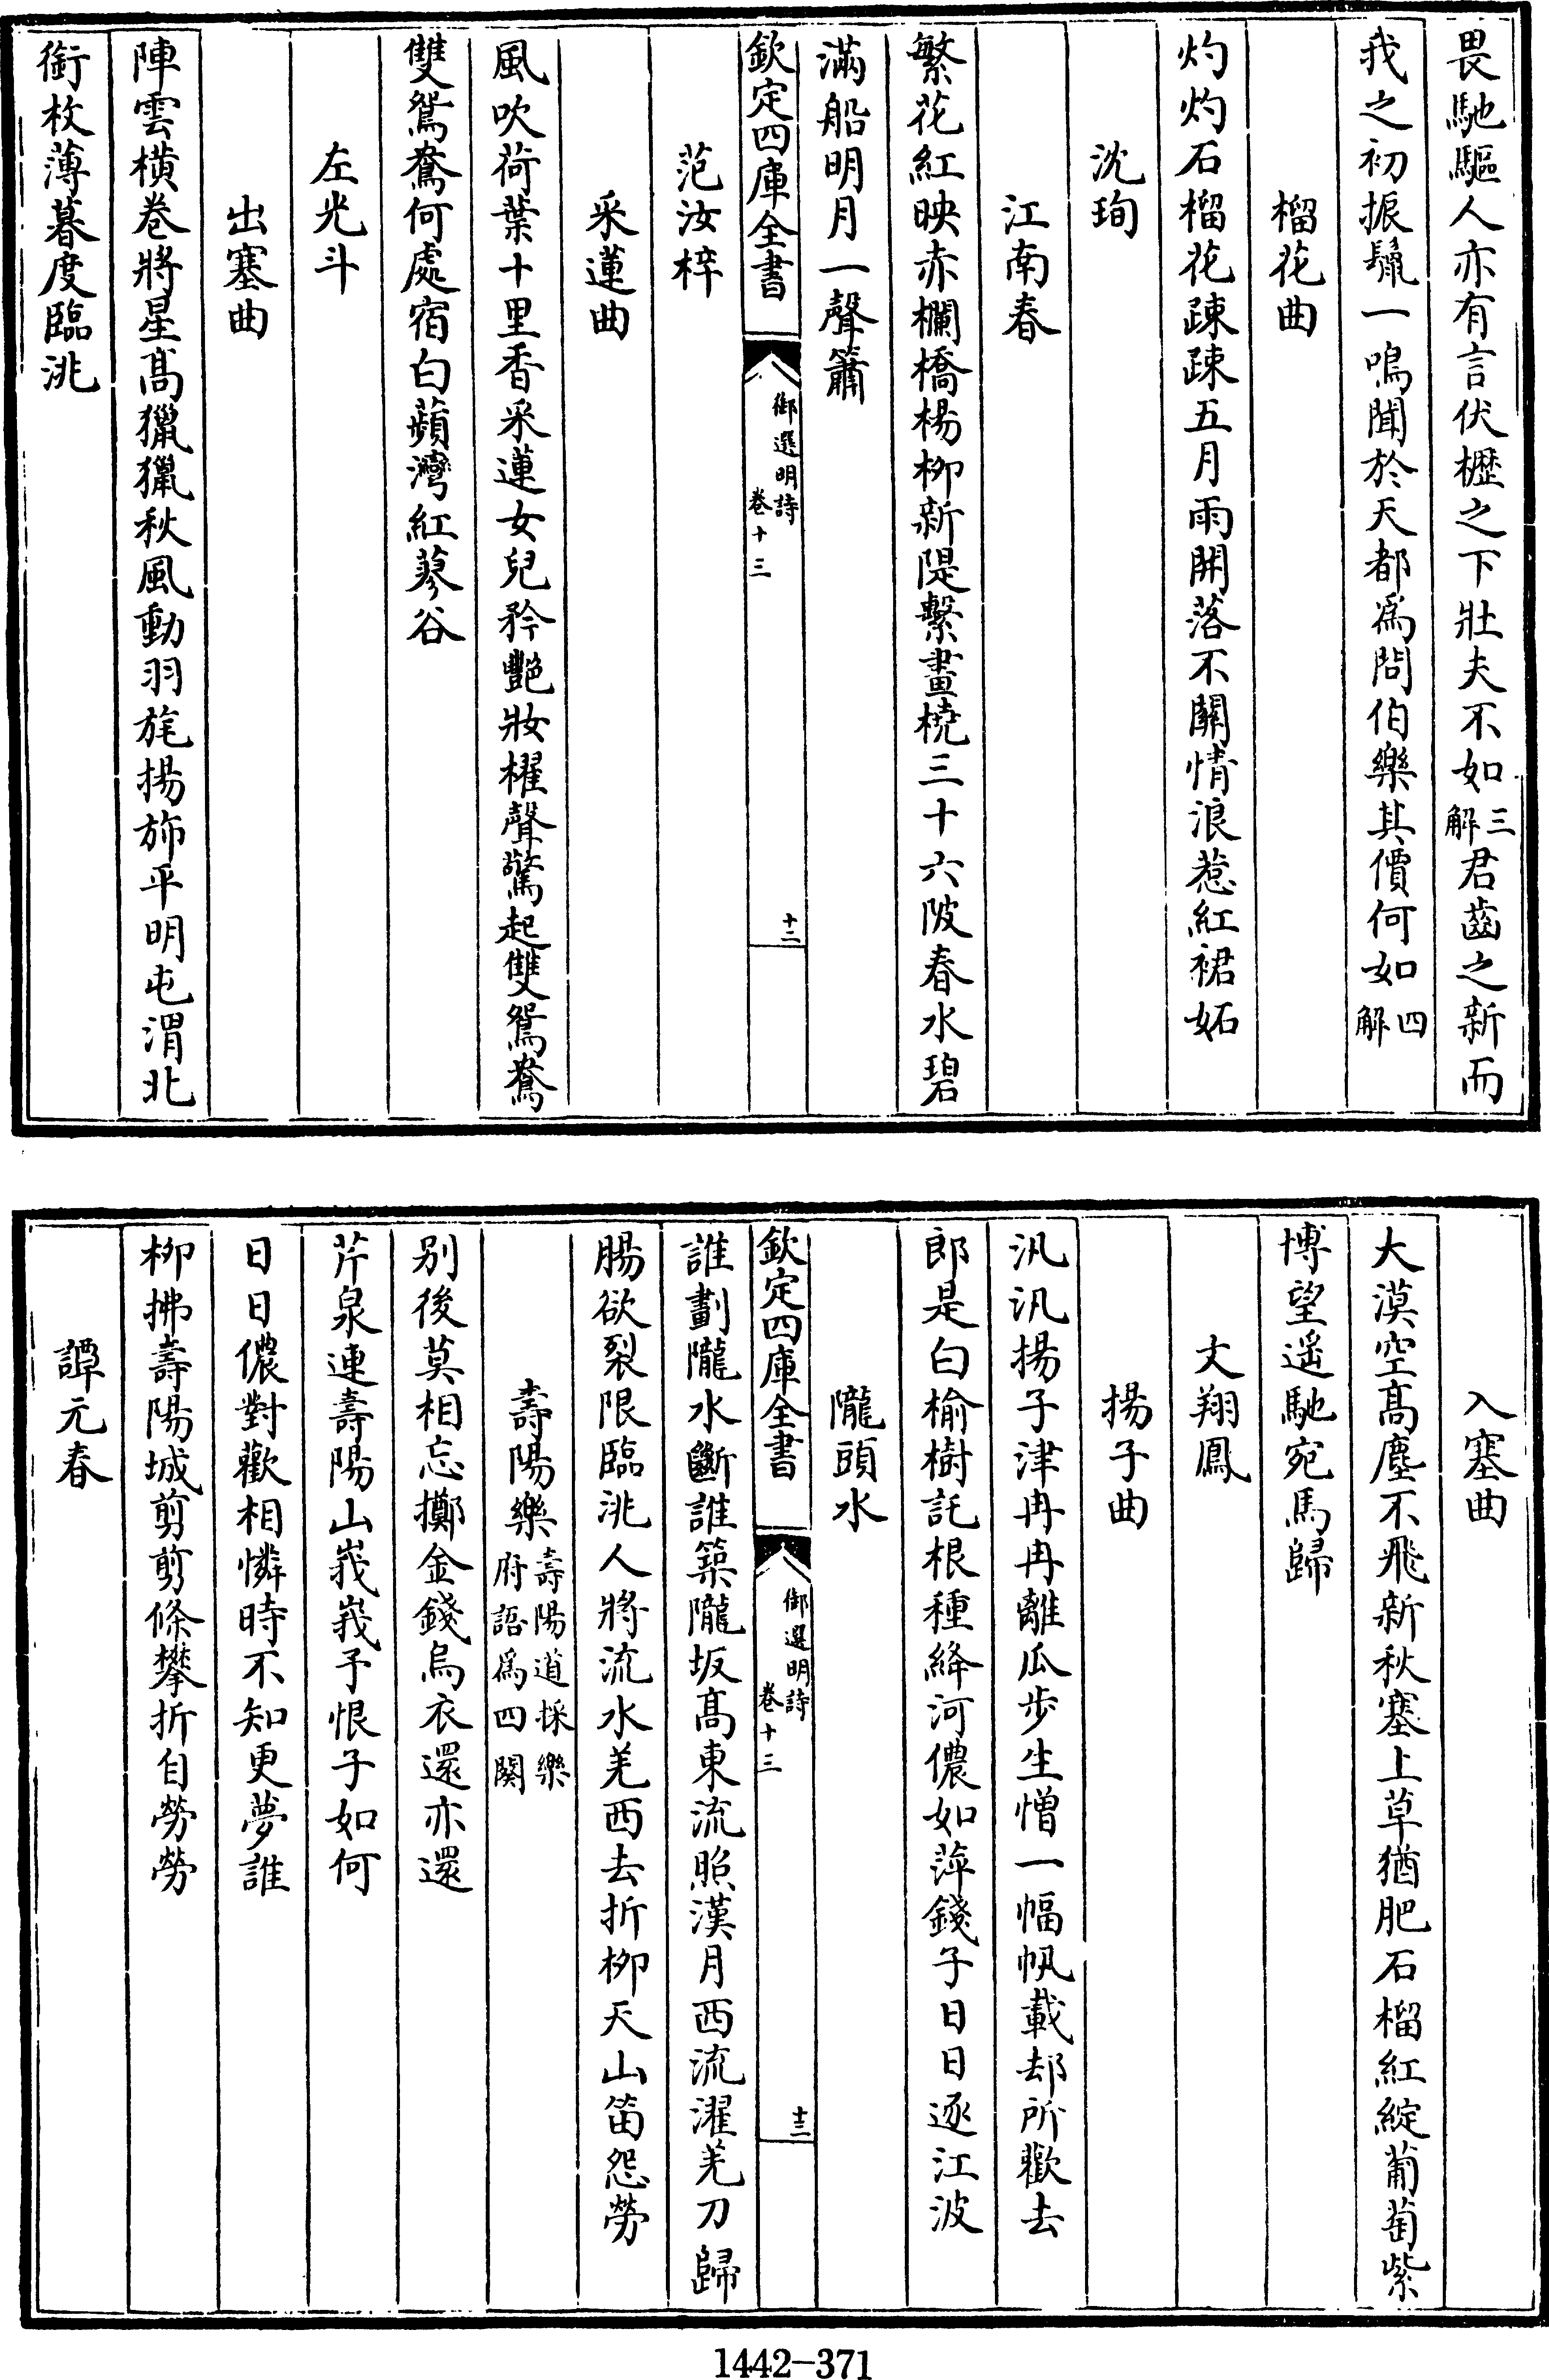 畏馳驅人亦有言伏櫪之下壯夫不如三解君齒之新而
我之初振鬛一鳴聞於天都為問伯樂其價何如四解
榴花曲
灼灼石榴花疎疎五月雨開落不關情浪惹紅裙妬
沈珣
江南春
繁花紅映赤欄橋楊柳新隄繫畫橈三十六陂春水碧
滿船明月一聲簫
欽定四庫全書
御選明詩
卷十三
十二
范汝梓
采蓮曲
風吹荷葉十里香采蓮女兒矜艷妝櫂聲驚起雙鴛鴦
雙鴛鴦何處宿白蘋灣紅蓼谷
左光斗
出塞曲
陣雲橫卷將星髙獵獵秋風動羽旄揚斾平明屯渭北
銜枚薄暮度臨洮
入塞曲
大漠空髙塵不飛新秋塞上草猶肥石榴紅綻葡萄紫
博望遥馳宛馬歸
文翔鳳
揚子曲
汎汎揚子津冉冉離瓜步生憎一幅帆載却所歡去
郎是白榆樹託根種絳河儂如萍錢子日日逐江波
隴頭水
欽定四庫全書
御選明詩
卷十三
十三
誰劃隴水斷誰築隴坂髙東流照漢月西流濯羌刀歸
腸欲裂限臨洮人將流水羌西去折栁天山笛怨勞
壽陽樂壽陽道採樂府語為四闋
别後莫相忘擲金錢烏衣還亦還
芹泉連壽陽山峩峩予恨子如何
日日儂對歡相憐時不知更夢誰
柳拂壽陽城剪剪條攀折自勞勞
譚元春
1442-371